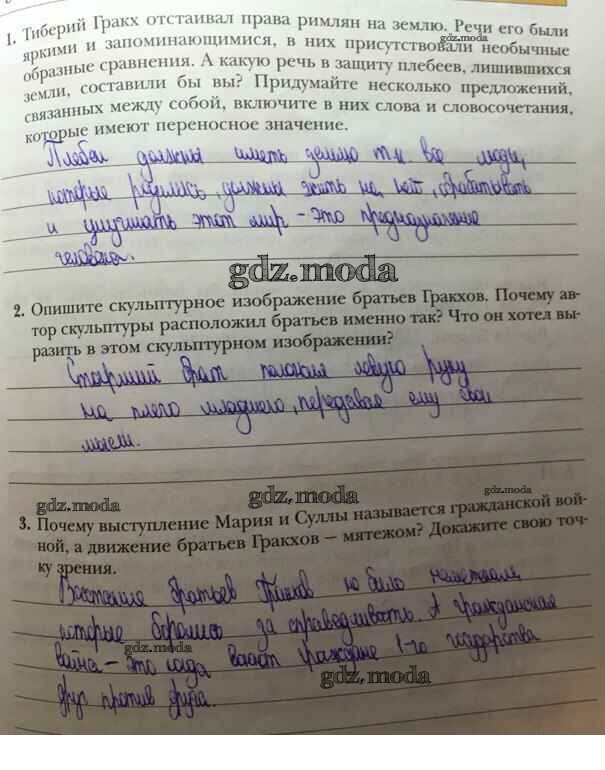 1. Тиберий Гракх отстаивал права римлян на землю. Речи его были
яркими и запоминающимися, в них присутствовали необычные
образные сравнения. А какую речь в защиту плебеев, лишившихся
земли, составили бы вы? Придумайте несколько предложений,
связанных между собой, включите в них слова и словосочетания,
которые имеют переносное значение.
Плебеи должны иметь землю т.к. все люди,
которые родились, должны жить на ней, обрабатывать
и улучшать этот мир - это предназначение
человека.
gdz.moda
2. Опишите скульптурное изображение братьев Гракхов. Почему ав-
тор скульптуры расположил братьев именно так? Что он хотел вы-
разить в этом скульптурном изображении?
Старший брат положил левую руку
на плечо младшего, передавая ему свои
мысли.
gdz.moda
gdz.moda
gdz.moda
3. Почему выступление Мария и Суллы называется гражданской вой-
ной, а движение братьев Гракхов – мятежом? Докажите свою точ-
ку зрения.
Восстание братьев Гракхов было
которые боролись за справедливость. А гражданская
gdz.moda
война - это когда граждане 1-го государства
gdz.moda
друг против друга.
gdz.moda